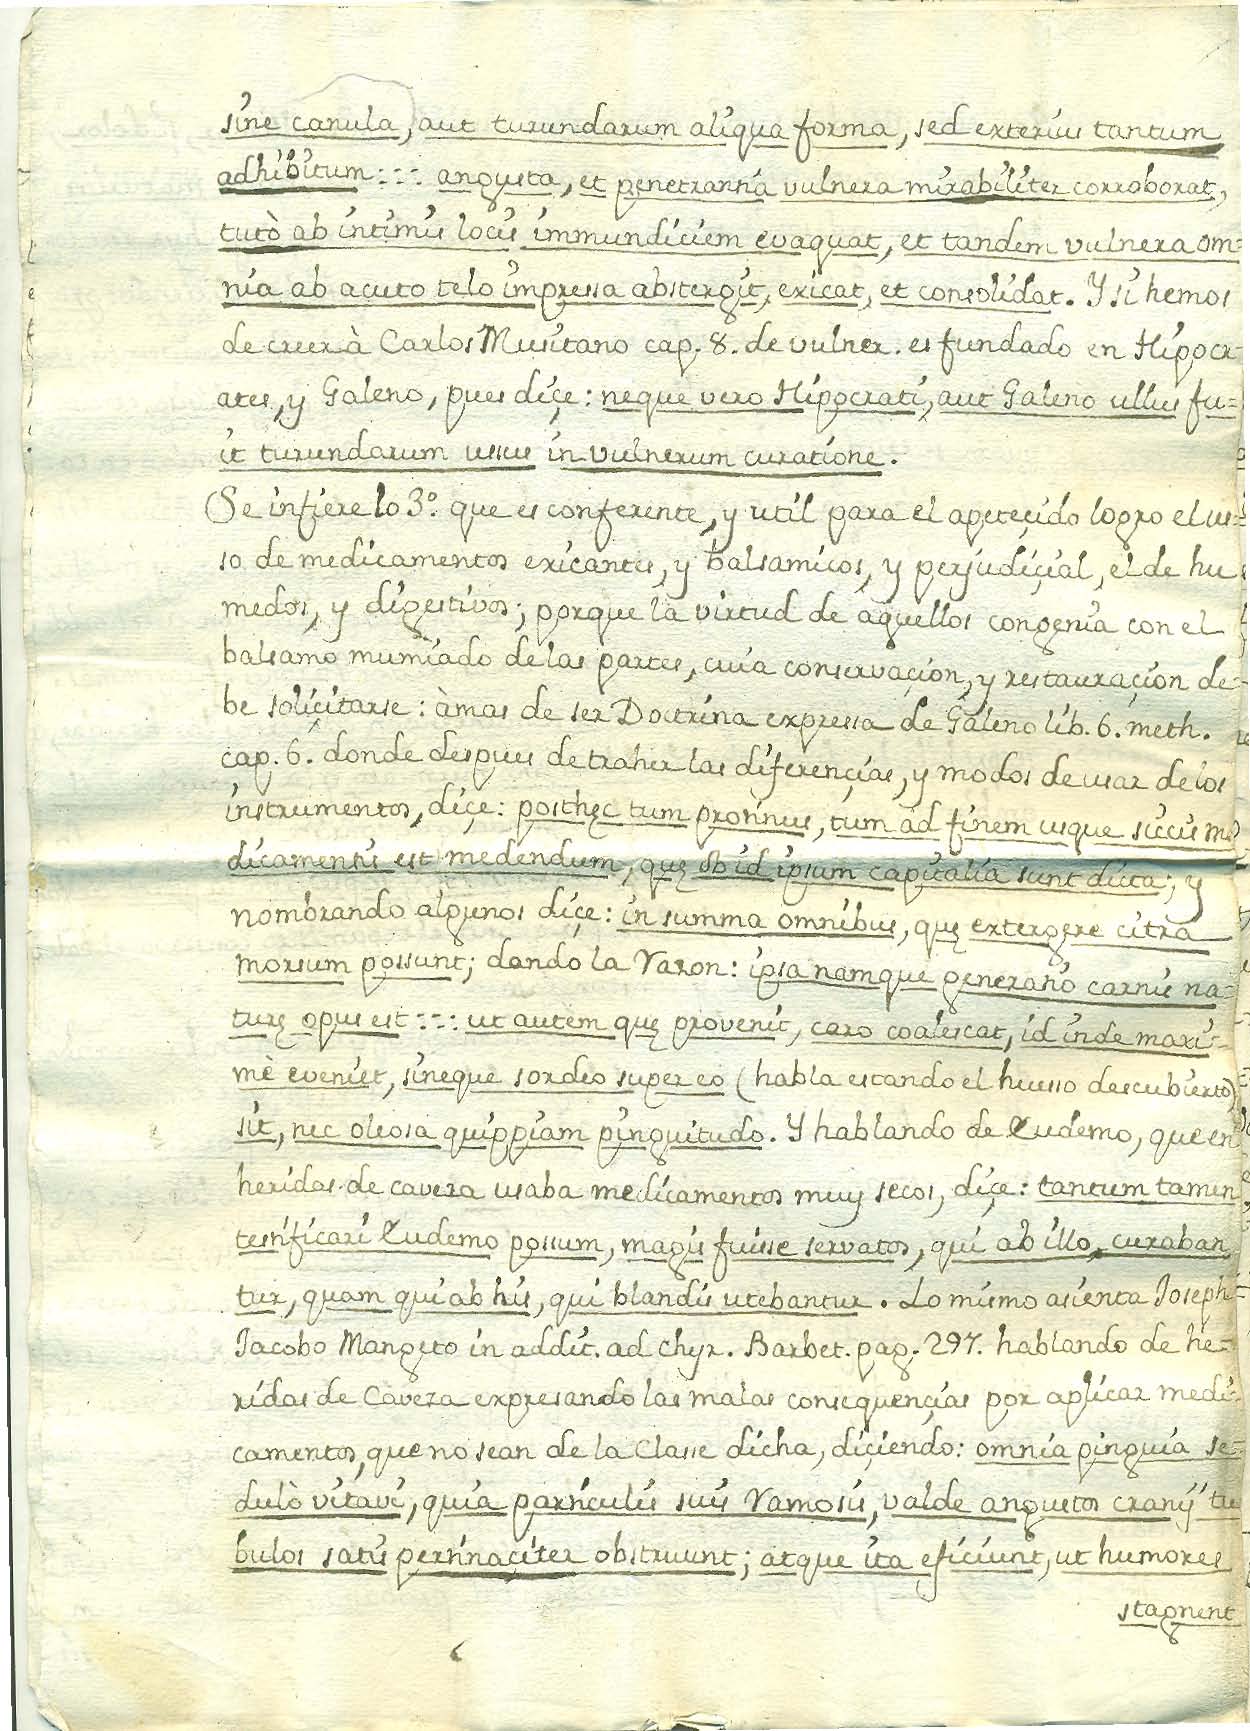 sine canula, aut turundarum aliqua forma, sed exterius tantum
adhibitum::: angusta, et penetrantia vulnera mirabiliter corroborat,
tutò ab intimis locis immundiciem evaquat, et tandem vulnera om=
nia ab acuto telo impressa abstergit, exicat, et consolidat. Y si hemos
de creer à Carlos Musitano cap. 8. de vulner. es fundado en Hipocr=
ates, y Galeno, pues diçe: neque vero Hipocrati, aut Galeno ullus fu=
it turundarum usus in vulnerum curatione.
Se infiere lo 3º. que es conferente, y util para el apeteçido logro el us=
so de medicamentos exicantes, y balsamicos, y perjudiçial, el de hu
medos, y digestivos; porque la virtud de aquellos congenia con el
balsamo mumiado de las partes, cuia conservaçion, y restauraçion de=
be soliçitarse: àmas de ser Doctrina expressa de Galeno lib. 6. meth.
cap. 6. donde despues de traher las diferençias, y modos de usar de los
instrumentos, diçe: posthęc tum protinus, tum ad finem usque siccis me
dicamentis est medendum, quę ob id ipsum capitalia sunt dicta; y
nombrando algunos diçe: in summa omnibus, quę extergere citra
morsum possunt; dando la Razon: ipsa namque generatio carnis na=
turę opus est::: ut autem quę provenit, caro coalescat, id inde maxi=
mè eveniet, sineque sordes super eo (habla estando el huesso descubierto)
sit, nec oleosa quippiam pinguitudo. Y hablando de Eudemo, que en
heridas de caveza usaba medicamentos muy secos, diçe: tantum tamen
testificari Eudemo possum, magis fuisse servatos, qui ab illo curaban
tur, quam qui ab his, qui blandis utebantur. Lo mismo asienta Joseph=
Jacobo Mangeto in addit. ad chyr. Barbet. pag. 297. hablando de he=
ridas de Caveza expresando las malas consequençias por aplicar medi=
camentos, que no sean de la Classe dicha, diçiendo: omnia pinguia se=
dulò vitavi, quia particulis suis ramosis, valde angustos cranij tu
bulos satis pertinaçiter obstruunt; atque ita efficiunt, ut humores
stagnent